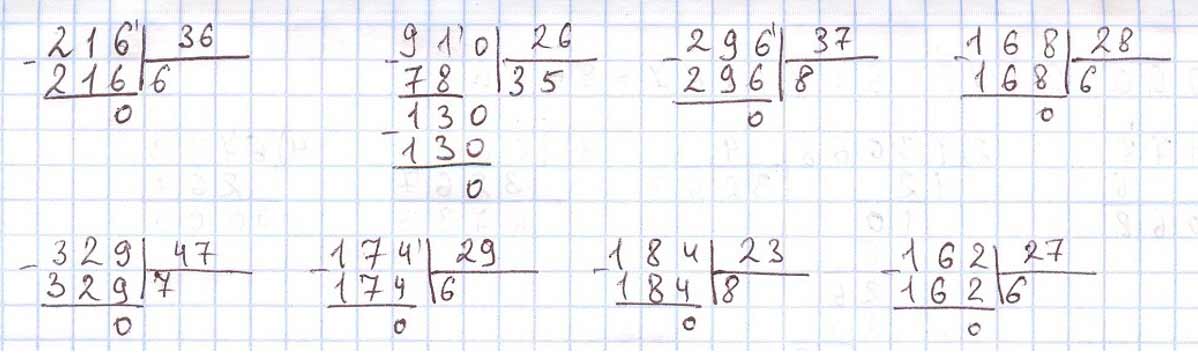 216 36
216 6
0
910 26
78 35
130
130
0
296 37
296 8
0
168 28
168 6
0
329 47
329 7
0
174 29
174 6
0
184 23
184 8
0
162 27
162 6
0